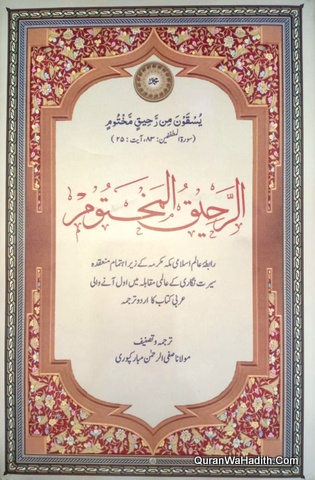 محمد
يُسْقَوْنَ مِن رَّحِيقٍ مَّخْتُومٍ
(سورۃ المطففین: ۸۳، آیت: ۲۵)
الرحیق المختوم
رابطۂ عالم اسلامی مکہ مکرمہ کے زیر اہتمام منعقدہ
سیرت نگاری کے عالمی مقابلہ میں اول آنے والی
عربی کتاب کا اردو ترجمہ
ترجمہ و تصنیف
مولانا صفی الرحمٰن مبارکپوری
QuranWaHadith.Com